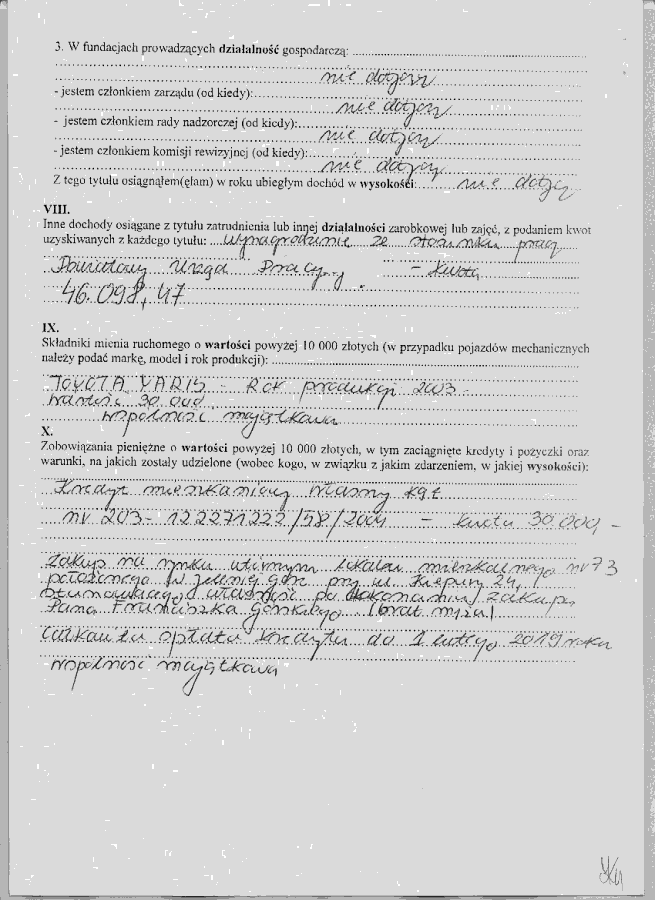 3. W fundacjach prowadzących działalność gospodarczą:
nie dotyczy
- jestem członkiem zarządu (od kiedy):
nie dotyczy
- jestem członkiem rady nadzorczej (od kiedy):
nie dotyczy
- jestem członkiem komisji rewizyjnej (od kiedy):
nie dotyczy
Z tego tytułu osiągnąłem(ęłam) w roku ubiegłym dochód w wysokości: nie dotyczy
VIII.
Inne dochody osiągane z tytułu zatrudnienia lub innej działalności zarobkowej lub zajęć, z podaniem kwot
uzyskiwanych z każdego tytułu: wynagrodzenie ze stosunku pracy
Powiatowy Urząd Pracy - kwota
46.098,47
IX.
Składniki mienia ruchomego o wartości powyżej 10 000 złotych (w przypadku pojazdów mechanicznych
należy podać markę, model i rok produkcji):
TOYOTA YARIS - Rok produkcji 2003 -
wartość 30.000
wspólność majątkowa
X.
Zobowiązania pieniężne o wartości powyżej 10 000 złotych, w tym zaciągnięte kredyty i pożyczki oraz
warunki, na jakich zostały udzielone (wobec kogo, w związku z jakim zdarzeniem, w jakiej wysokości):
Kredyt mieszkaniowy Własny Kąt
nr 203-122271222/58/2004 - kwota 30.000,-
zakup na rynku wtórnym lokalu mieszkalnego nr 73
położonego w Jeleniej Górze przy ul. Kiepury 24,
stanowiącego własność po dokonaniu zakupu
Pana Franciszka (brat męża)
całkowita spłata kredytu do 1 lutego 2019 roku
wspólność majątkowa